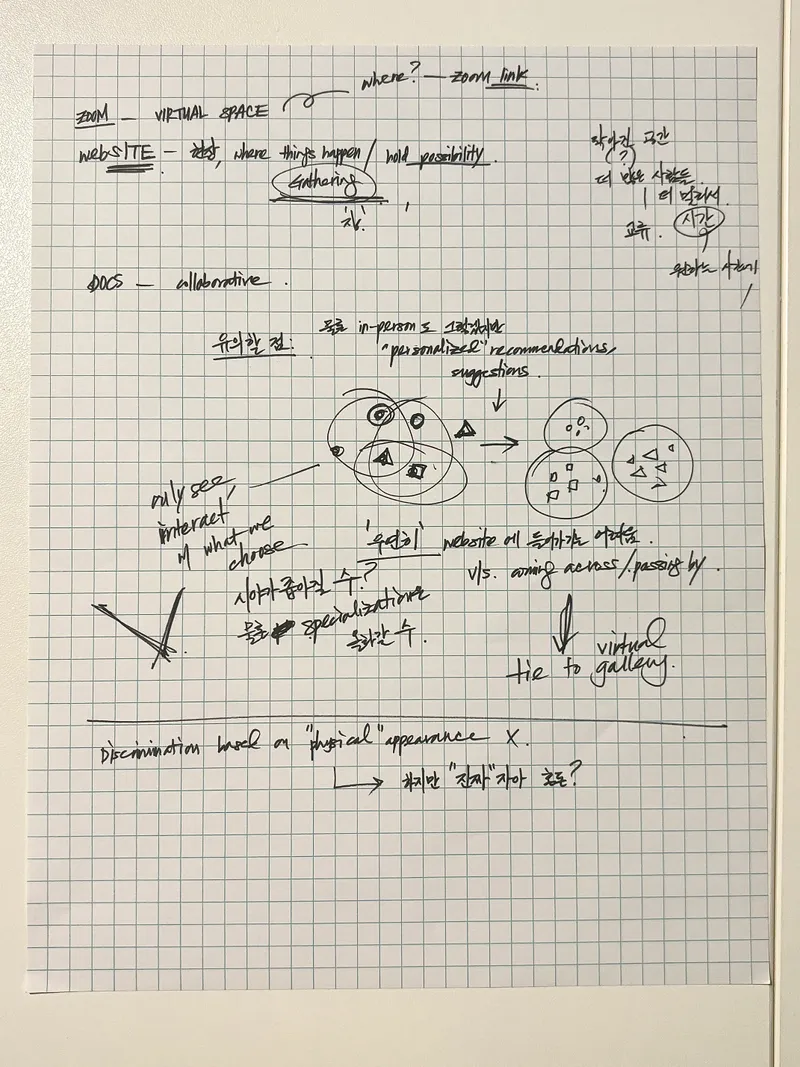 where? — zoom link.
ZOOM — VIRTUAL SPACE
webSITE — 현장, where things happen / hold possibility.
Gathering
'장.'
작아진 공간
(?)
더 많은 사람들
더 멀리서
교류. 시간
원하는 시간에
DOCS — collaborative.
유의할 점:
물론 in-person도 그렇겠지만
"personalized" recommendations,
suggestions.
only see,
interact
w what we
choose
'우연히' website에 들어가기는 어려움.
v/s. coming across / passing by.
시야가 좁아질 수?
물론 specialization은
올라갈 수.
tie to virtual
gallery.
Discrimination based on "physical" appearance X.
하지만 "진짜" 자아 혼돈?